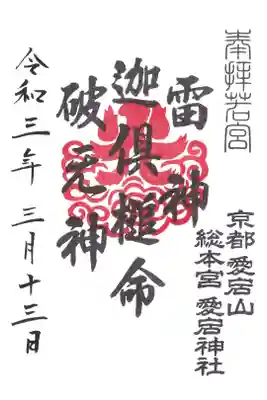 奉拝若宮
京都愛宕山
総本宮 愛宕神社
雷神
迦倶槌命
破无神
令和三年 三月十三日